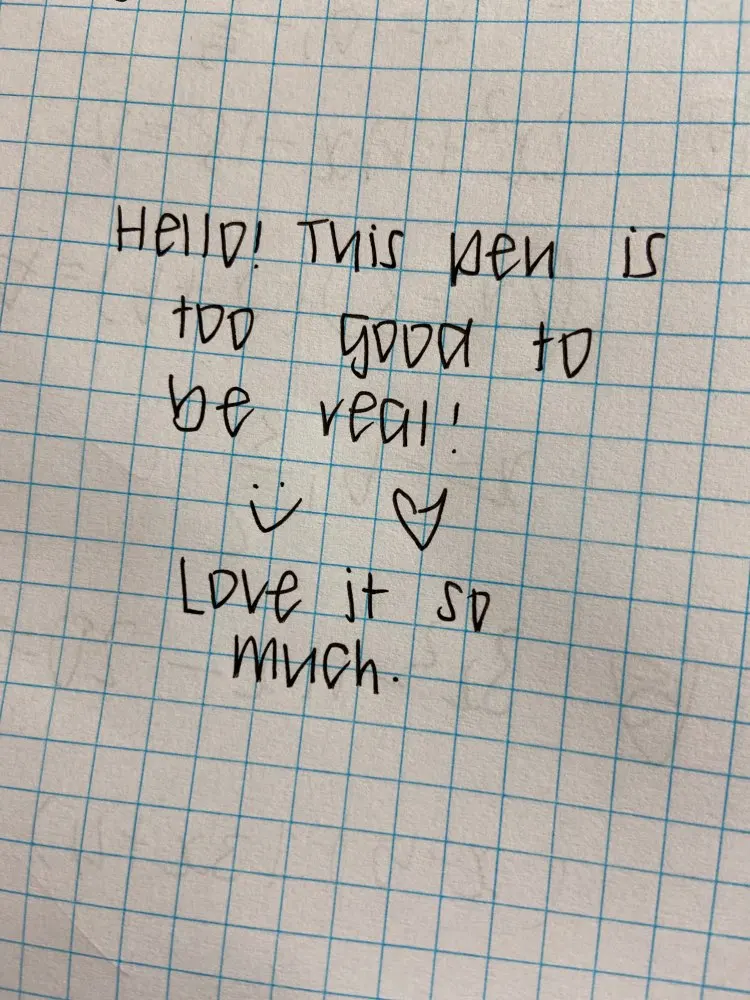 Hello! This pen is
too good to
be real!
Love it so
much.